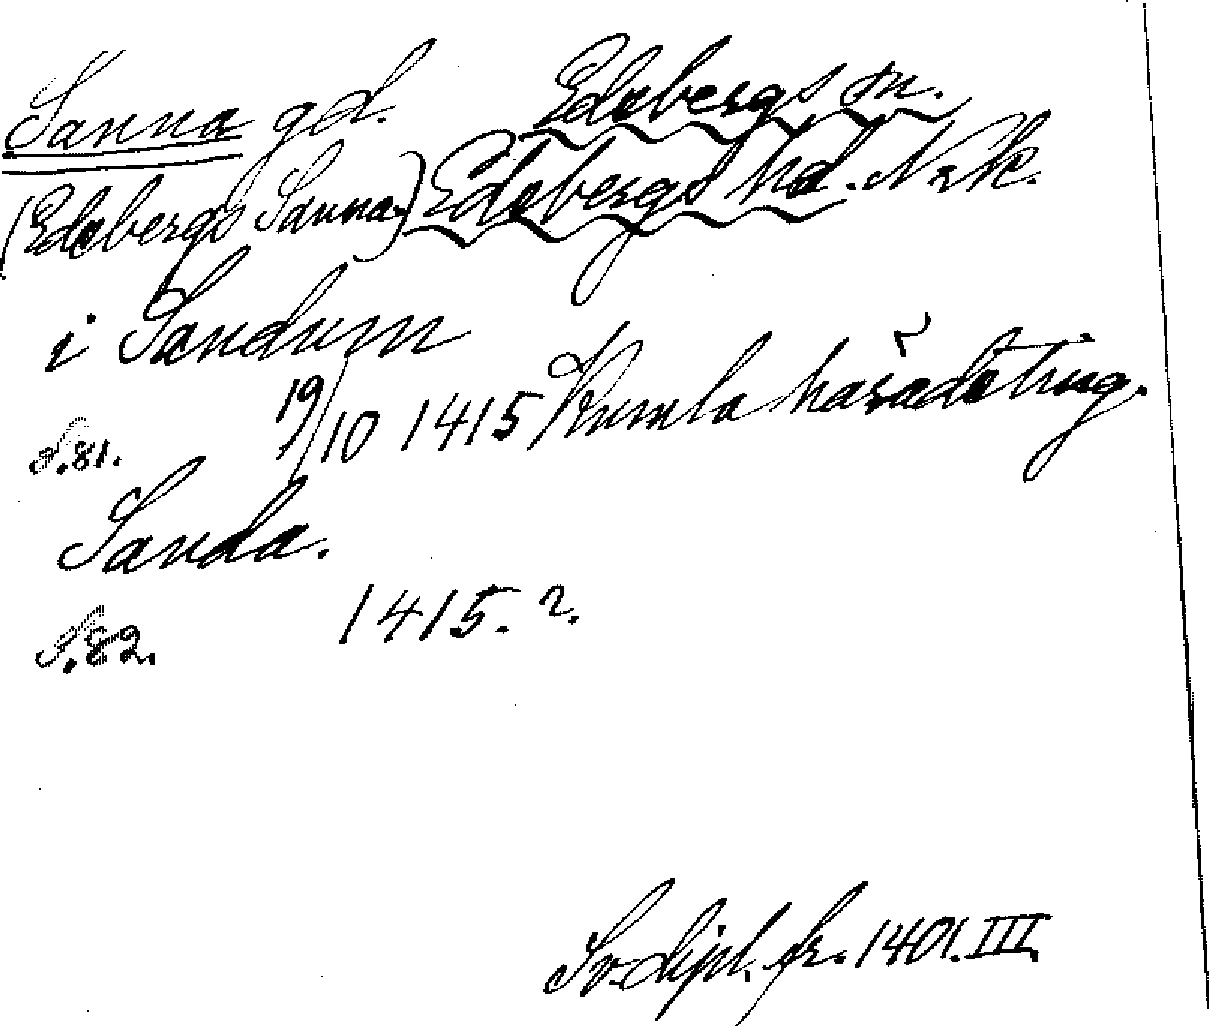 Sanna gd. Edsbergs sn.
(Edsbergs Sanna) Edsbergs hd. Nrk.
i Sandum
S.81. 19/10 1415 Kumla häradsting.
Sanda.
S.82. 1415. r.
Sv. dipl. fr. 1401. III.